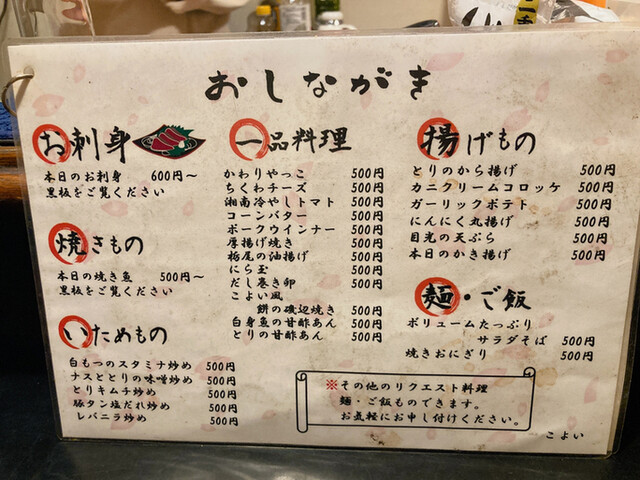 おしながき
お刺身
本日のお刺身 600円～
黒板をご覧ください
焼きもの
本日の焼き魚 500円～
黒板をご覧ください
いためもの
白もつのスタミナ炒め 500円
ナスととりの味噌炒め 500円
とりキムチ炒め 500円
豚タン塩だれ炒め 500円
レバニラ炒め 500円
一品料理
かわりやっこ 500円
ちくわチーズ 500円
湘南冷やしトマト 500円
コーンバター 500円
ポークウインナー 500円
厚揚げ焼き 500円
栃尾の油揚げ 500円
にら玉 500円
だし巻き卵 500円
こよい風
餅の磯辺焼き 500円
白身魚の甘酢あん 500円
とりの甘酢あん 500円
揚げもの
とりのから揚げ 500円
カニクリームコロッケ 500円
ガーリックポテト 500円
にんにく丸揚げ 500円
目光の天ぷら 500円
本日のかき揚げ 500円
麺・ご飯
ボリュームたっぷり
サラダそば 500円
焼きおにぎり 500円
※その他のリクエスト料理
麺・ご飯ものできます。
お気軽にお申し付けください。
こよい